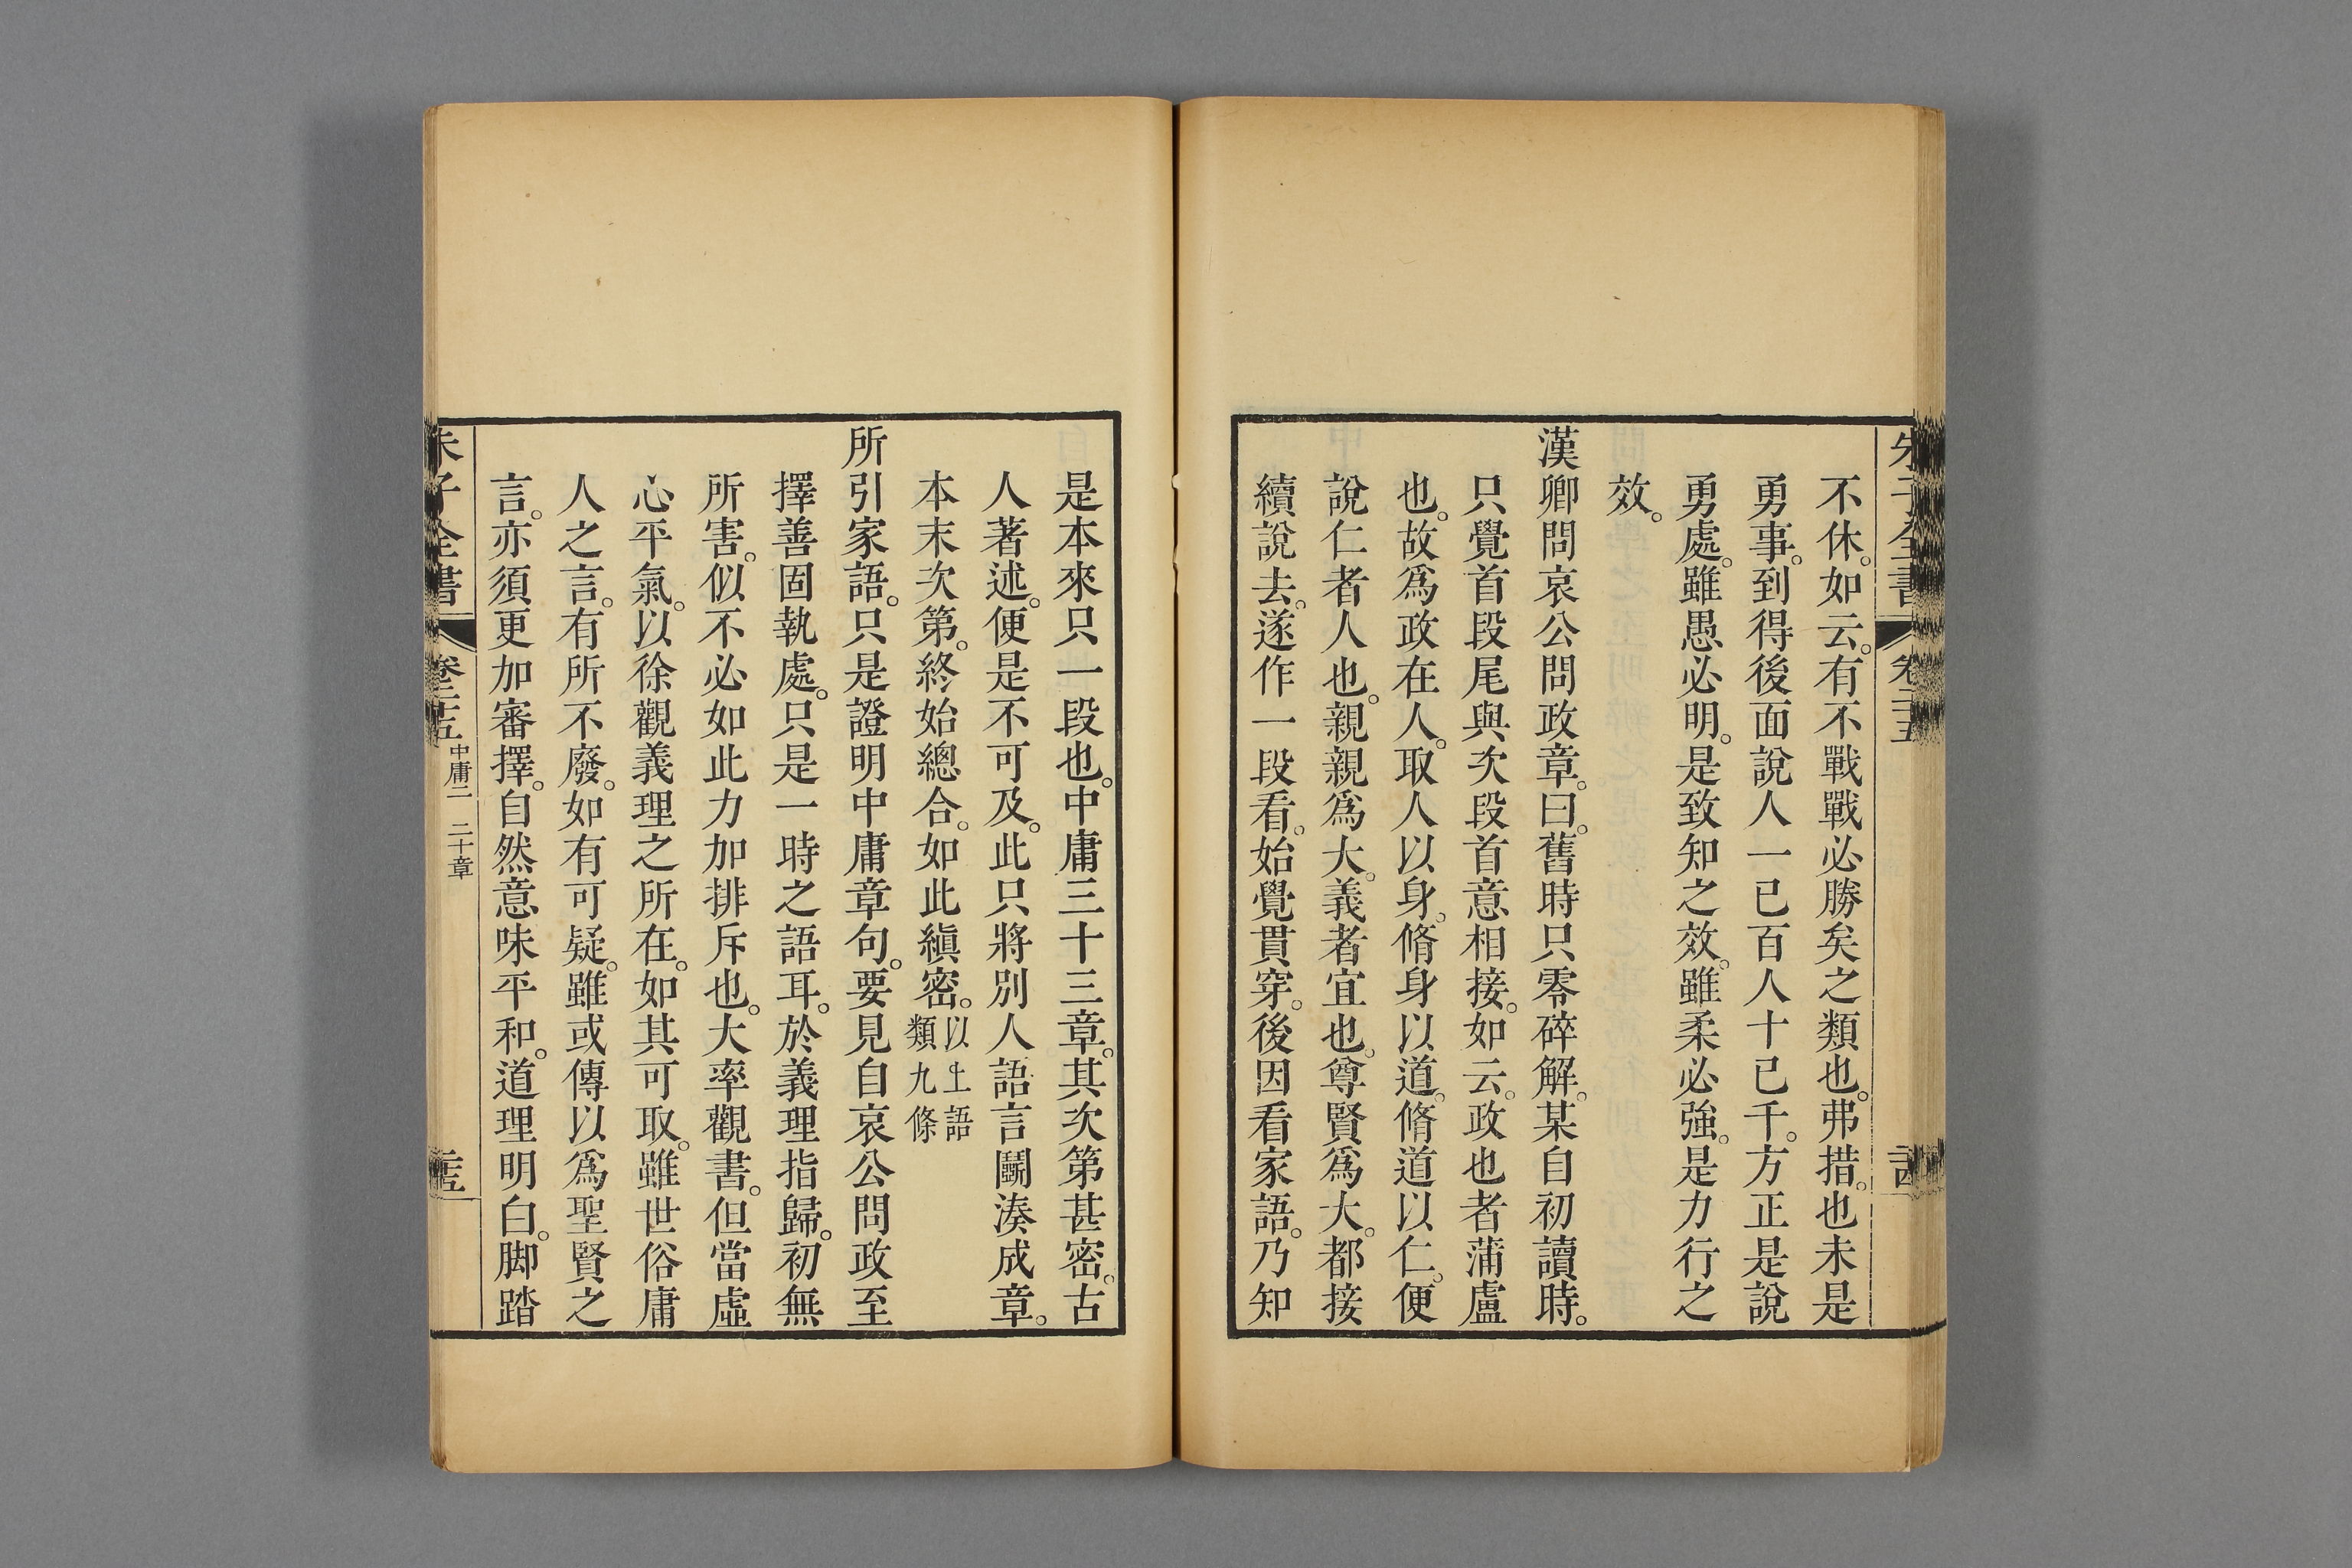 朱子全書 卷二十五
不休。如云。有不戰戰必勝矣之類也。弗措。也未是
勇事。到得後面說人一己百人十己千。方正是說
勇處。雖愚必明。是致知之效。雖柔必強。是力行之
效。
漢卿問哀公問政章。曰。舊時只零碎解。某自初讀時。
只覺首段尾與次段首意相接。如云。政也者蒲盧
也。故爲政在人。取人以身。脩身以道。脩道以仁。便
說仁者人也。親親爲大。義者宜也。尊賢爲大。都接
續說去。遂作一段看。始覺貫穿。後因看家語。乃知
是本來只一段也。中庸三十三章。其次第甚密。古
人著述。便是不可及。此只將別人語言鬭湊成章。
本末次第。終始總合。如此縝密。以上語
類九條
所引家語。只是證明中庸章句。要見自哀公問政至
擇善固執處。只是一時之語耳。於義理指歸。初無
所害。似不必如此力加排斥也。大率觀書。但當虛
心平氣。以徐觀義理之所在。如其可取。雖世俗庸
人之言。有所不廢。如有可疑。雖或傳以爲聖賢之
言。亦須更加審擇。自然意味平和。道理明白。脚踏
朱子全書 卷二十五 中庸二 二十章 二十五